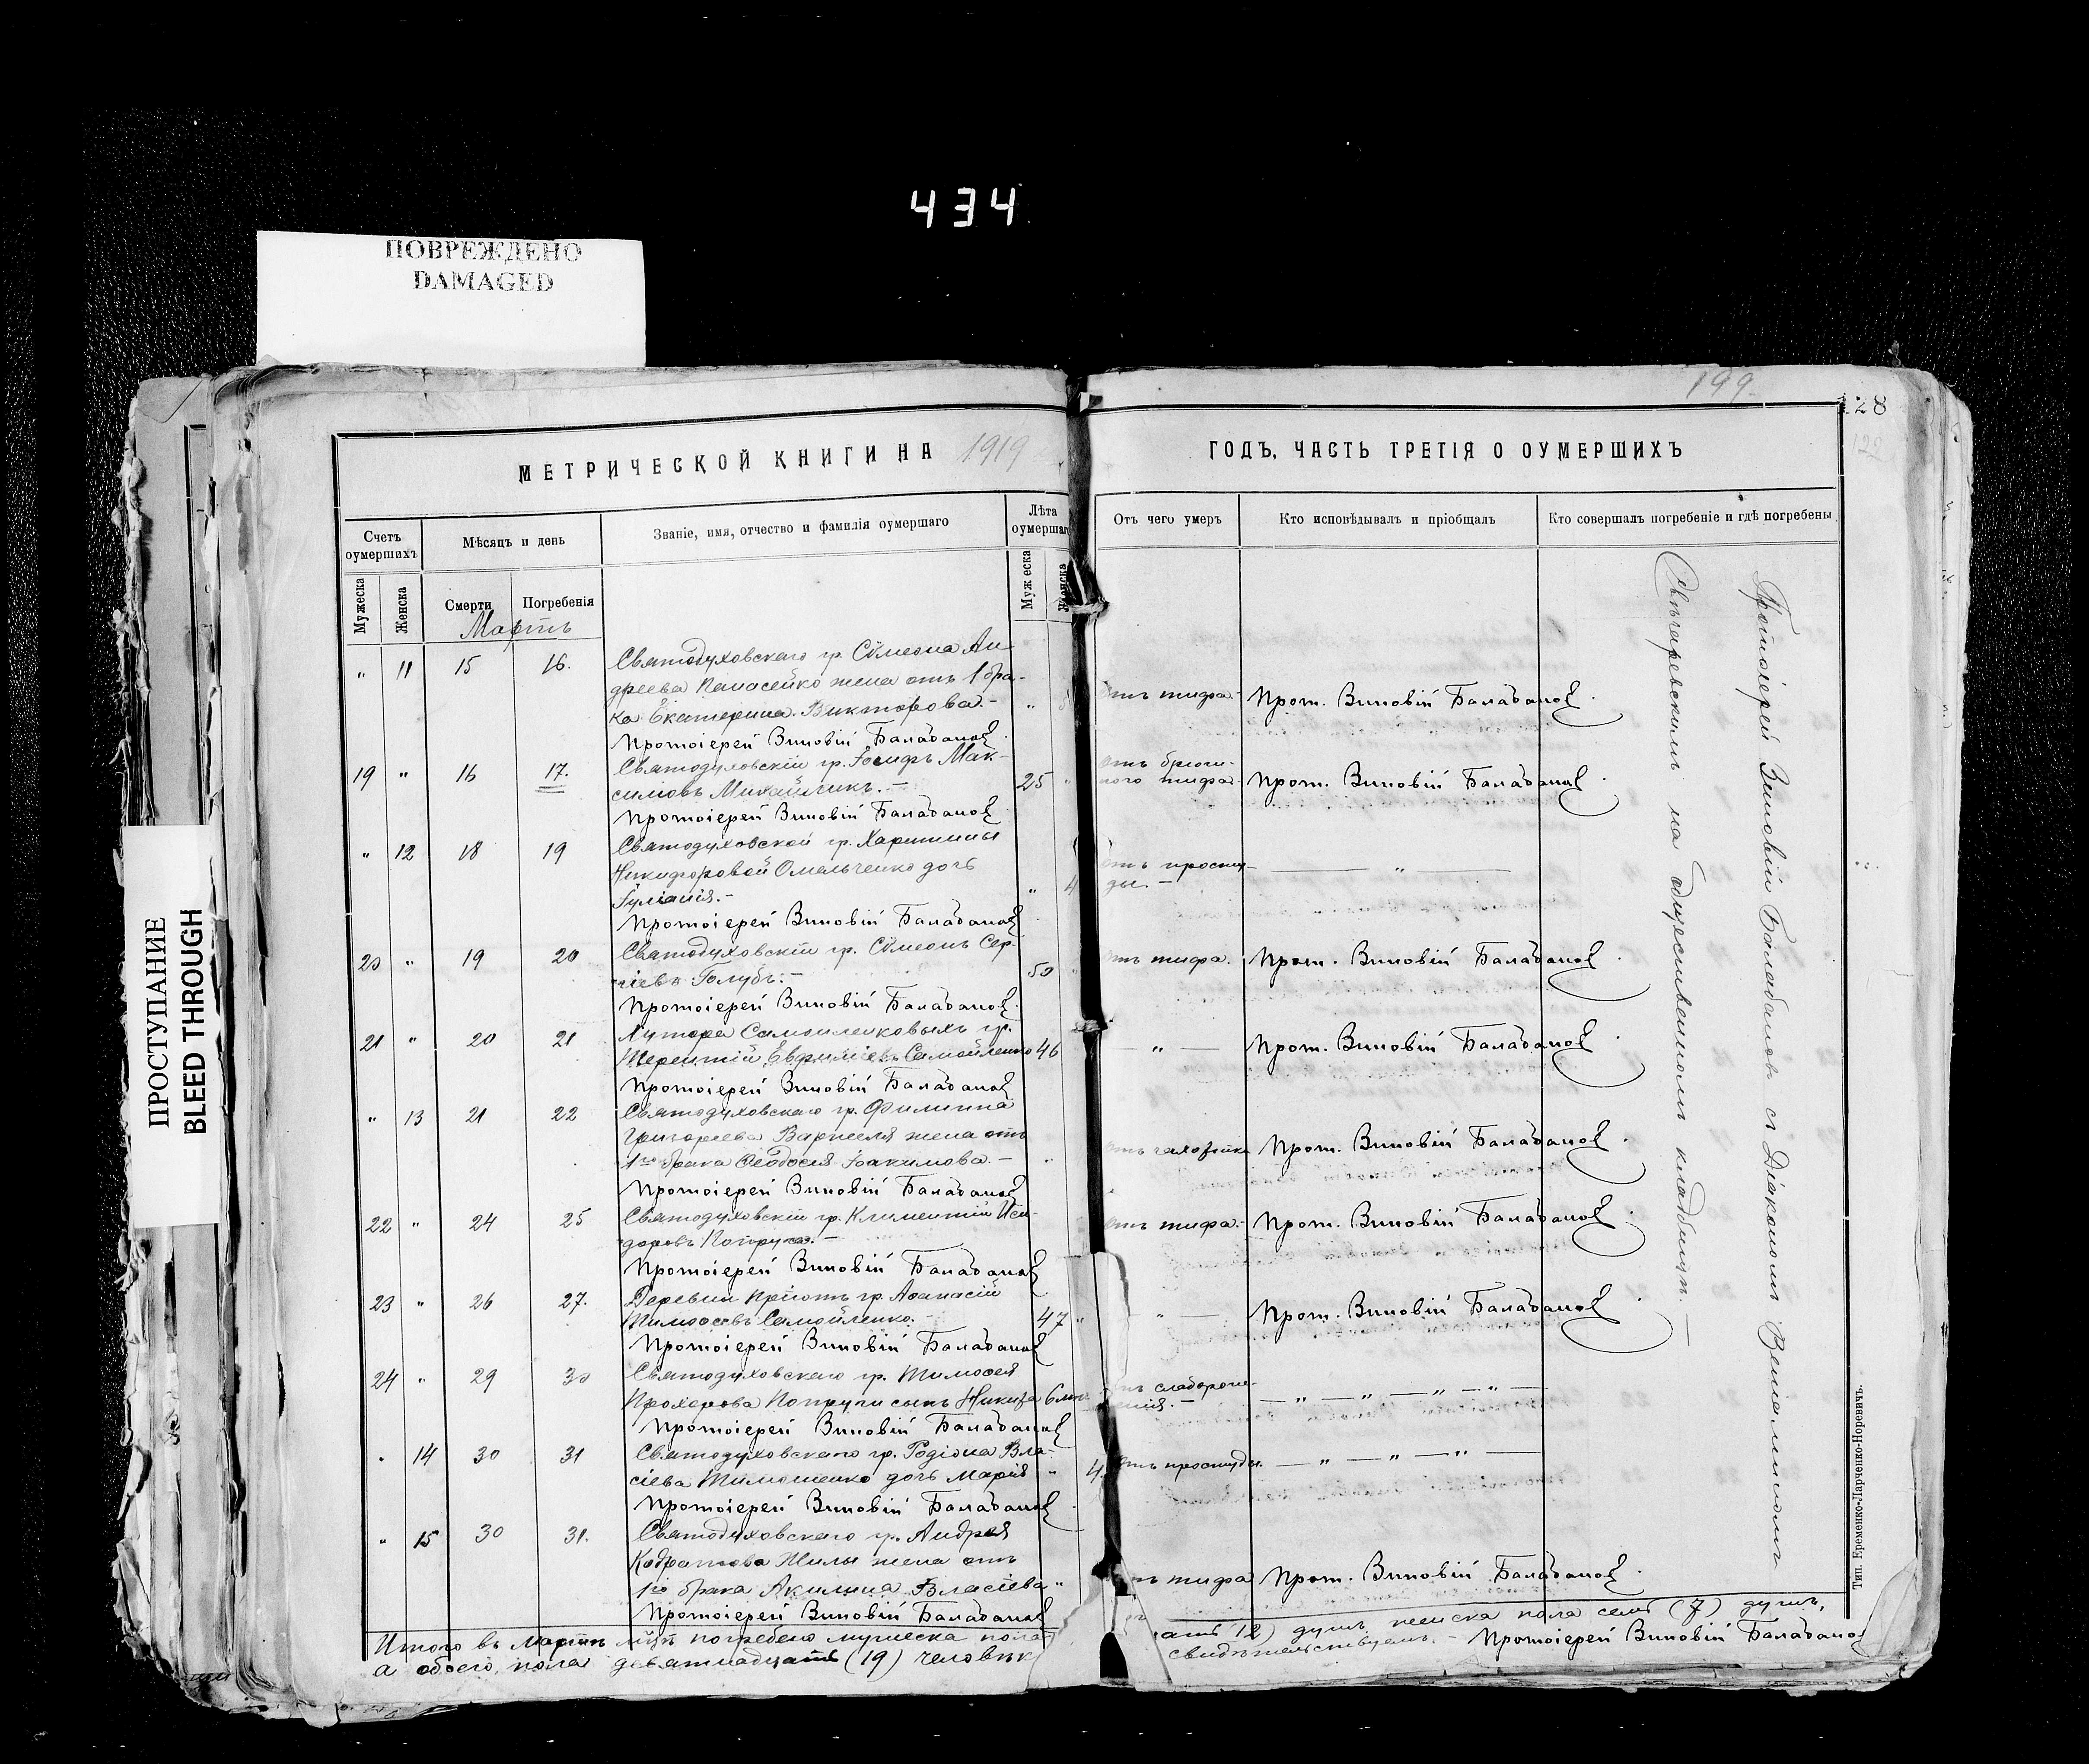 434
ПОВРЕЖДЕНО
DAMAGED
ПРОСТУПАНИЕ
BLEED THROUGH
199
128
МЕТРИЧЕСКОЙ КНИГИ НА 1919
ГОДЪ, ЧАСТЬ ТРЕТІЯ О ОУМЕРШИХЪ
Счетъ оумершихъ
Мѣсяцъ и день
Званіе, имя, отчество и фамилія оумершаго
Лѣта оумершаго
Отъ чего умеръ
Кто исповѣдывалъ и пріобщалъ
Кто совершалъ погребеніе и гдѣ погребены
Мужеска
Женска
Смерти
Погребенія
Муж еска
Женска
Мартъ
" 11 15 16. Святодуховскаго гр. Сѵмеона Ан
дреева Панасейко жена отъ 1 бра-
ка Екатерина Викторова. - "
отъ тифа. - Прот. Зиновій Балабановъ.
Протоіерей Зиновій Балабановъ.
19 " 16 17. Святодуховскій гр. Іосифъ Мак-
симовъ Михайликъ. - 25 "
отъ брюш-
ного тифа - Прот. Зиновій Балабановъ.
Протоіерей Зиновій Балабановъ
" 12 18 19 Святодуховской гр. Харитины
Никифоровой Омельченко дочь
Іуліанія. - " 4
отъ просту-
ды. - "
Протоіерей Зиновій Балабановъ
20 " 19 20 Святодуховскій гр. Сѵмеонъ Сер-
гіевъ Голубъ. - 50
отъ тифа. Прот. Зиновій Балабановъ.
Протоіерей Зиновій Балабановъ.
21 " 20 21 Хутора Самойленковыхъ гр.
Терентій Евфиміевъ Самойленко 46
— " — Прот. Зиновій Балабановъ.
Протоіерей Зиновій Балабановъ
" 13 21 22 Святодуховскаго гр. Филиппа
Григорьева жена отъ
1го брака Ѳеодосія Іоакимова. - "
отъ чахотки Прот. Зиновій Балабановъ.
Протоіерей Зиновій Балабановъ
22 " 24 25 Святодуховскій гр. Климентій Иси-
доровъ Попруга. -
отъ тифа. - Прот. Зиновій Балабановъ.
Протоіерей Зиновій Балабановъ
23 " 26 27. Деревни Пріютъ гр. Аѳанасій
Тимоѳеевъ Самойленко. - 47 "
" — Прот. Зиновій Балабановъ.
Протоіерей Зиновій Балабановъ
24 " 29 30 Святодуховскаго гр. Тимоѳея
Прохорова Попруги сынъ Никита 6 мѣс.
— " — " — " — " —
Протоіерей Зиновій Балабановъ
" 14 30 31 Святодуховскаго гр. Родіона Вла-
сіева Тимошенко дочь Марія " 4.
отъ простуды. — " — " — " —
Протоіерей Зиновій Балабановъ.
" 15 30 31. Святодуховскаго гр. Андрея
жена отъ
1го брака Акилина Власіева "
отъ тифа Прот. Зиновій Балабановъ.
Протоіерей Зиновій Балабановъ
Итого въ Мартѣ мцѣ погребено мужеска пола
12) душъ, женска пола семь (7) душъ,
а обоего пола девятнадцать (19) человѣкъ
свидѣтельствуемъ. - Протоіерей Зиновій Балабановъ
Протоіерей Зиновій Балабановъ съ Діакономъ Веніаминомъ
на общественномъ кладбищѣ. —
Тип. Еременко-Ларченко-Норевичъ.